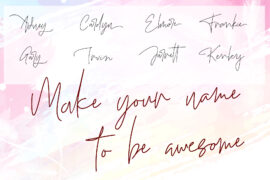 Adney Carolyn Elmore Franke
Gary Irvin Jarrett Kenboy
Make your name
to be awesome